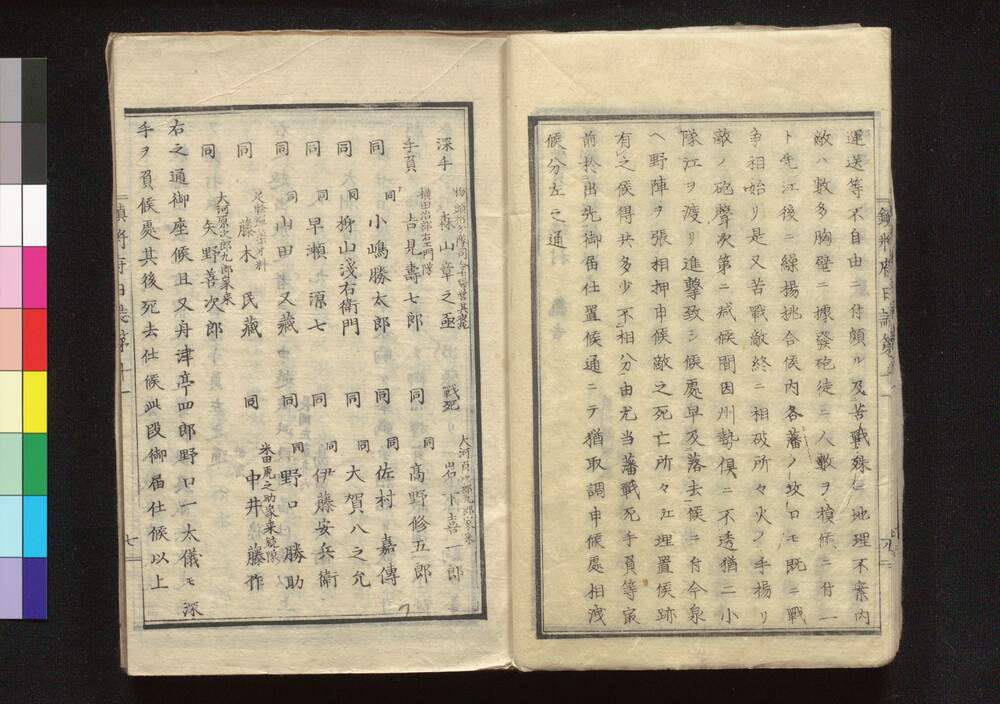 運送等不自由ニ付頗ル及苦戰殊ニ地理不案内
敵ハ數多胸壁ニ據發砲徒ニ人數ヲ損候ニ付一
ト先江後ニ繰揚挑合候内各藩ノ攻口モ既ニ戰
争相始リ是又苦戰敵終ニ相破所々火ノ手揚リ
敵ノ砲聲次第ニ減候間因州勢倶ニ不透猶二小
隊江ヲ渡リ進擊致シ候處早及落去候ニ付今泉
ヘ野陣ヲ張相押申候敵之死亡所々江埋置候跡
有之候得共多少不相分由尤当藩戰死手負等宸
前於出先御届仕置候通ニテ猶取調申候處相洩
候分左之通
鎮将府日誌第
深手
森山章之亟
手負
横田治部右エ門隊
吉見壽七郎
同 同 小嶋勝太郎
同 同 栁山淺右衛門
同 同 早瀬源七
同 同 山田又藏
同
藤木民藏
同
大河原次郎九郎家来
矢野善次郎
戰死
岩下喜一郎
同 同 高野修五郎
同 同 佐村嘉傳
同 同 大賀八之允
同 同 伊藤安兵衛
同 同 野口勝助
同
米田虎之助家来
中井藤作
右之通御座候且又舟津亭四郎野口一太儀モ深
手ヲ負候處其後死去仕候此段御届仕候以上
七